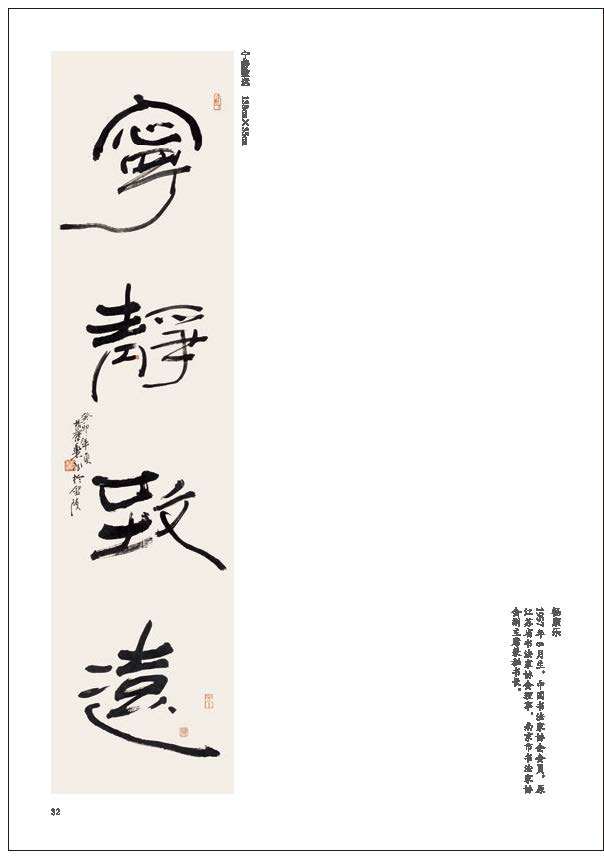 宁静致远 138cm×35cm
寧靜致遠
癸卯年夏
楊康樂书於金陵
杨康乐
1957年8月生。中国书法家协会会员，原
江苏省书法家协会理事，南京市书法家协
会副主席兼秘书长。
32